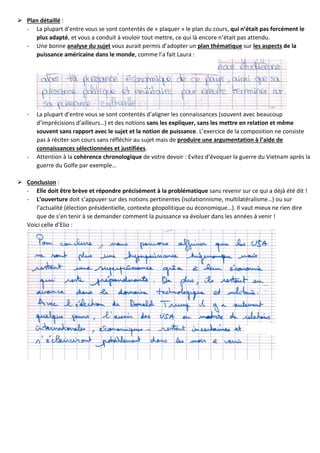 ➢ Plan détaillé :
- La plupart d'entre vous se sont contentés de « plaquer » le plan du cours, qui n'était pas forcément le
plus adapté, et vous a conduit à vouloir tout mettre, ce qui là encore n'était pas attendu.
- Une bonne analyse du sujet vous aurait permis d'adopter un plan thématique sur les aspects de la
puissance américaine dans le monde, comme l'a fait Laura :
nous étudierons
alors la puissance économique de ce pays, ainsi que sa
puissance politique et militaire pour ensuite terminer sur
sa puissance culturelle.
- La plupart d'entre vous se sont contentés d'aligner les connaissances (souvent avec beaucoup
d'imprécisions d'ailleurs…) et des notions sans les expliquer, sans les mettre en relation et même
souvent sans rapport avec le sujet et la notion de puissance. L'exercice de la composition ne consiste
pas à réciter son cours sans réfléchir au sujet mais de produire une argumentation à l'aide de
connaissances sélectionnées et justifiées.
- Attention à la cohérence chronologique de votre devoir : Evitez d'évoquer la guerre du Vietnam après la
guerre du Golfe par exemple…
➢ Conclusion :
- Elle doit être brève et répondre précisément à la problématique sans revenir sur ce qui a déjà été dit !
- L'ouverture doit s'appuyer sur des notions pertinentes (isolationnisme, multilatéralisme…) ou sur
l'actualité (élection présidentielle, contexte géopolitique ou économique…). Il vaut mieux ne rien dire
que de s'en tenir à se demander comment la puissance va évoluer dans les années à venir !
Voici celle d'Elio :
Pour conclure, nous pouvons affirmer que les USA
ne sont plus une hyperpuissance hégémonique mais
restent une superpuissance grâce à leur économie
qui reste prépondérante. De plus, ils restent en
avance dans le domaine technologique et militaire.
Avec l'élection de Donald Trump il y a seulement
quelques jours, l'avenir des USA en matière de relations
internationales, économiques… restent incertaines et
s'éclairciront probablement dans les mois à venir.